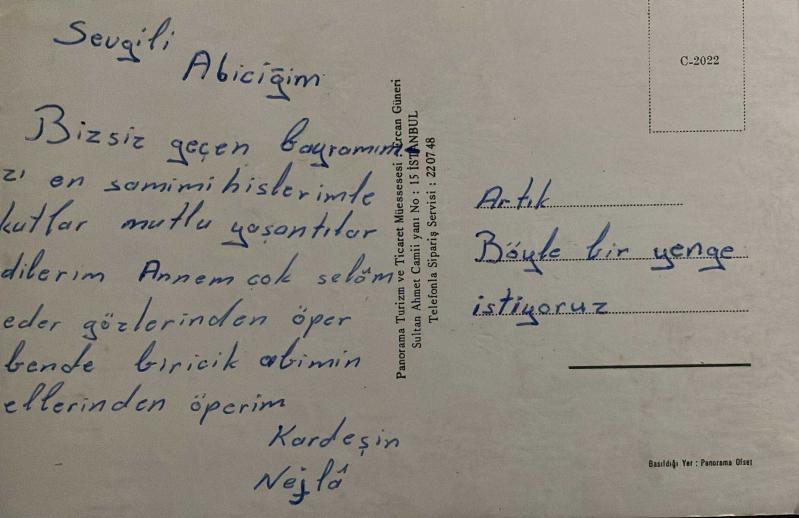 Sevgili
Abiciğim
Bizsiz geçen bayramım-
zı en samimi hislerimle
kutlar mutlu yaşantılar
dilerim Annem çok selâm
eder gözlerinden öper
bende biricik abimin
ellerinden öperim
Kardeşin
Nejlâ
Panorama Turizm ve Ticaret Müessesesi : Ercan Güneri
Sultan Ahmet Camii yanı No : 15 İSTANBUL
Telefonla Sipariş Servisi : 22 07 48
C-2022
Artık
Böyle bir yenge
istiyoruz
Basıldığı Yer : Panorama Ofset